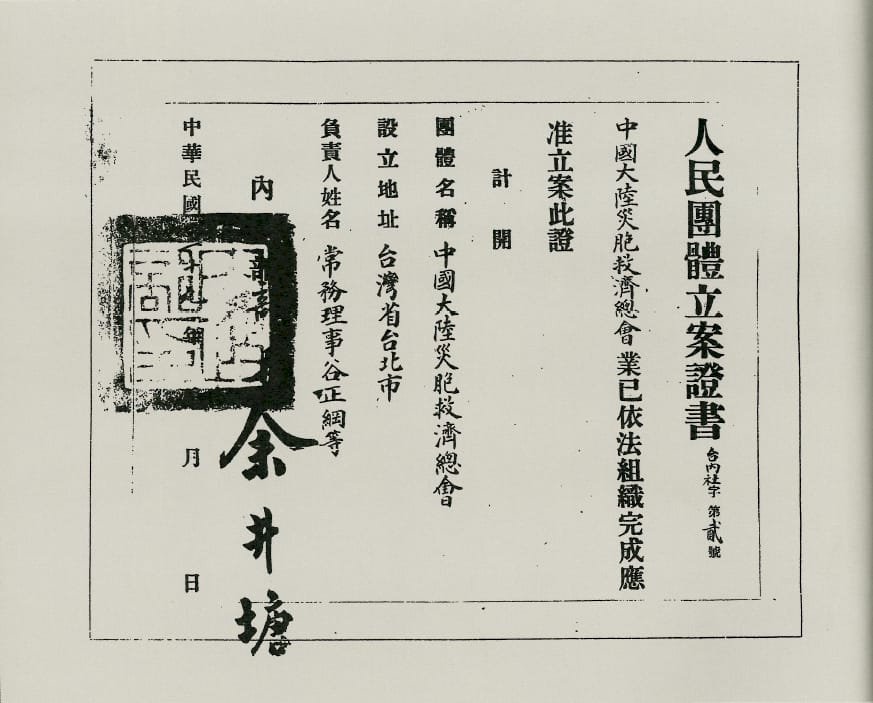 人民團體立案證書 台內社字第貳號
中國大陸災胞救濟總會業已依法組織完成應
准立案此證
計開
團體名稱 中國大陸災胞救濟總會
設立地址 台灣省台北市
負責人姓名 常務理事谷正綱等
內 余井塘
中華民國 年 月 日